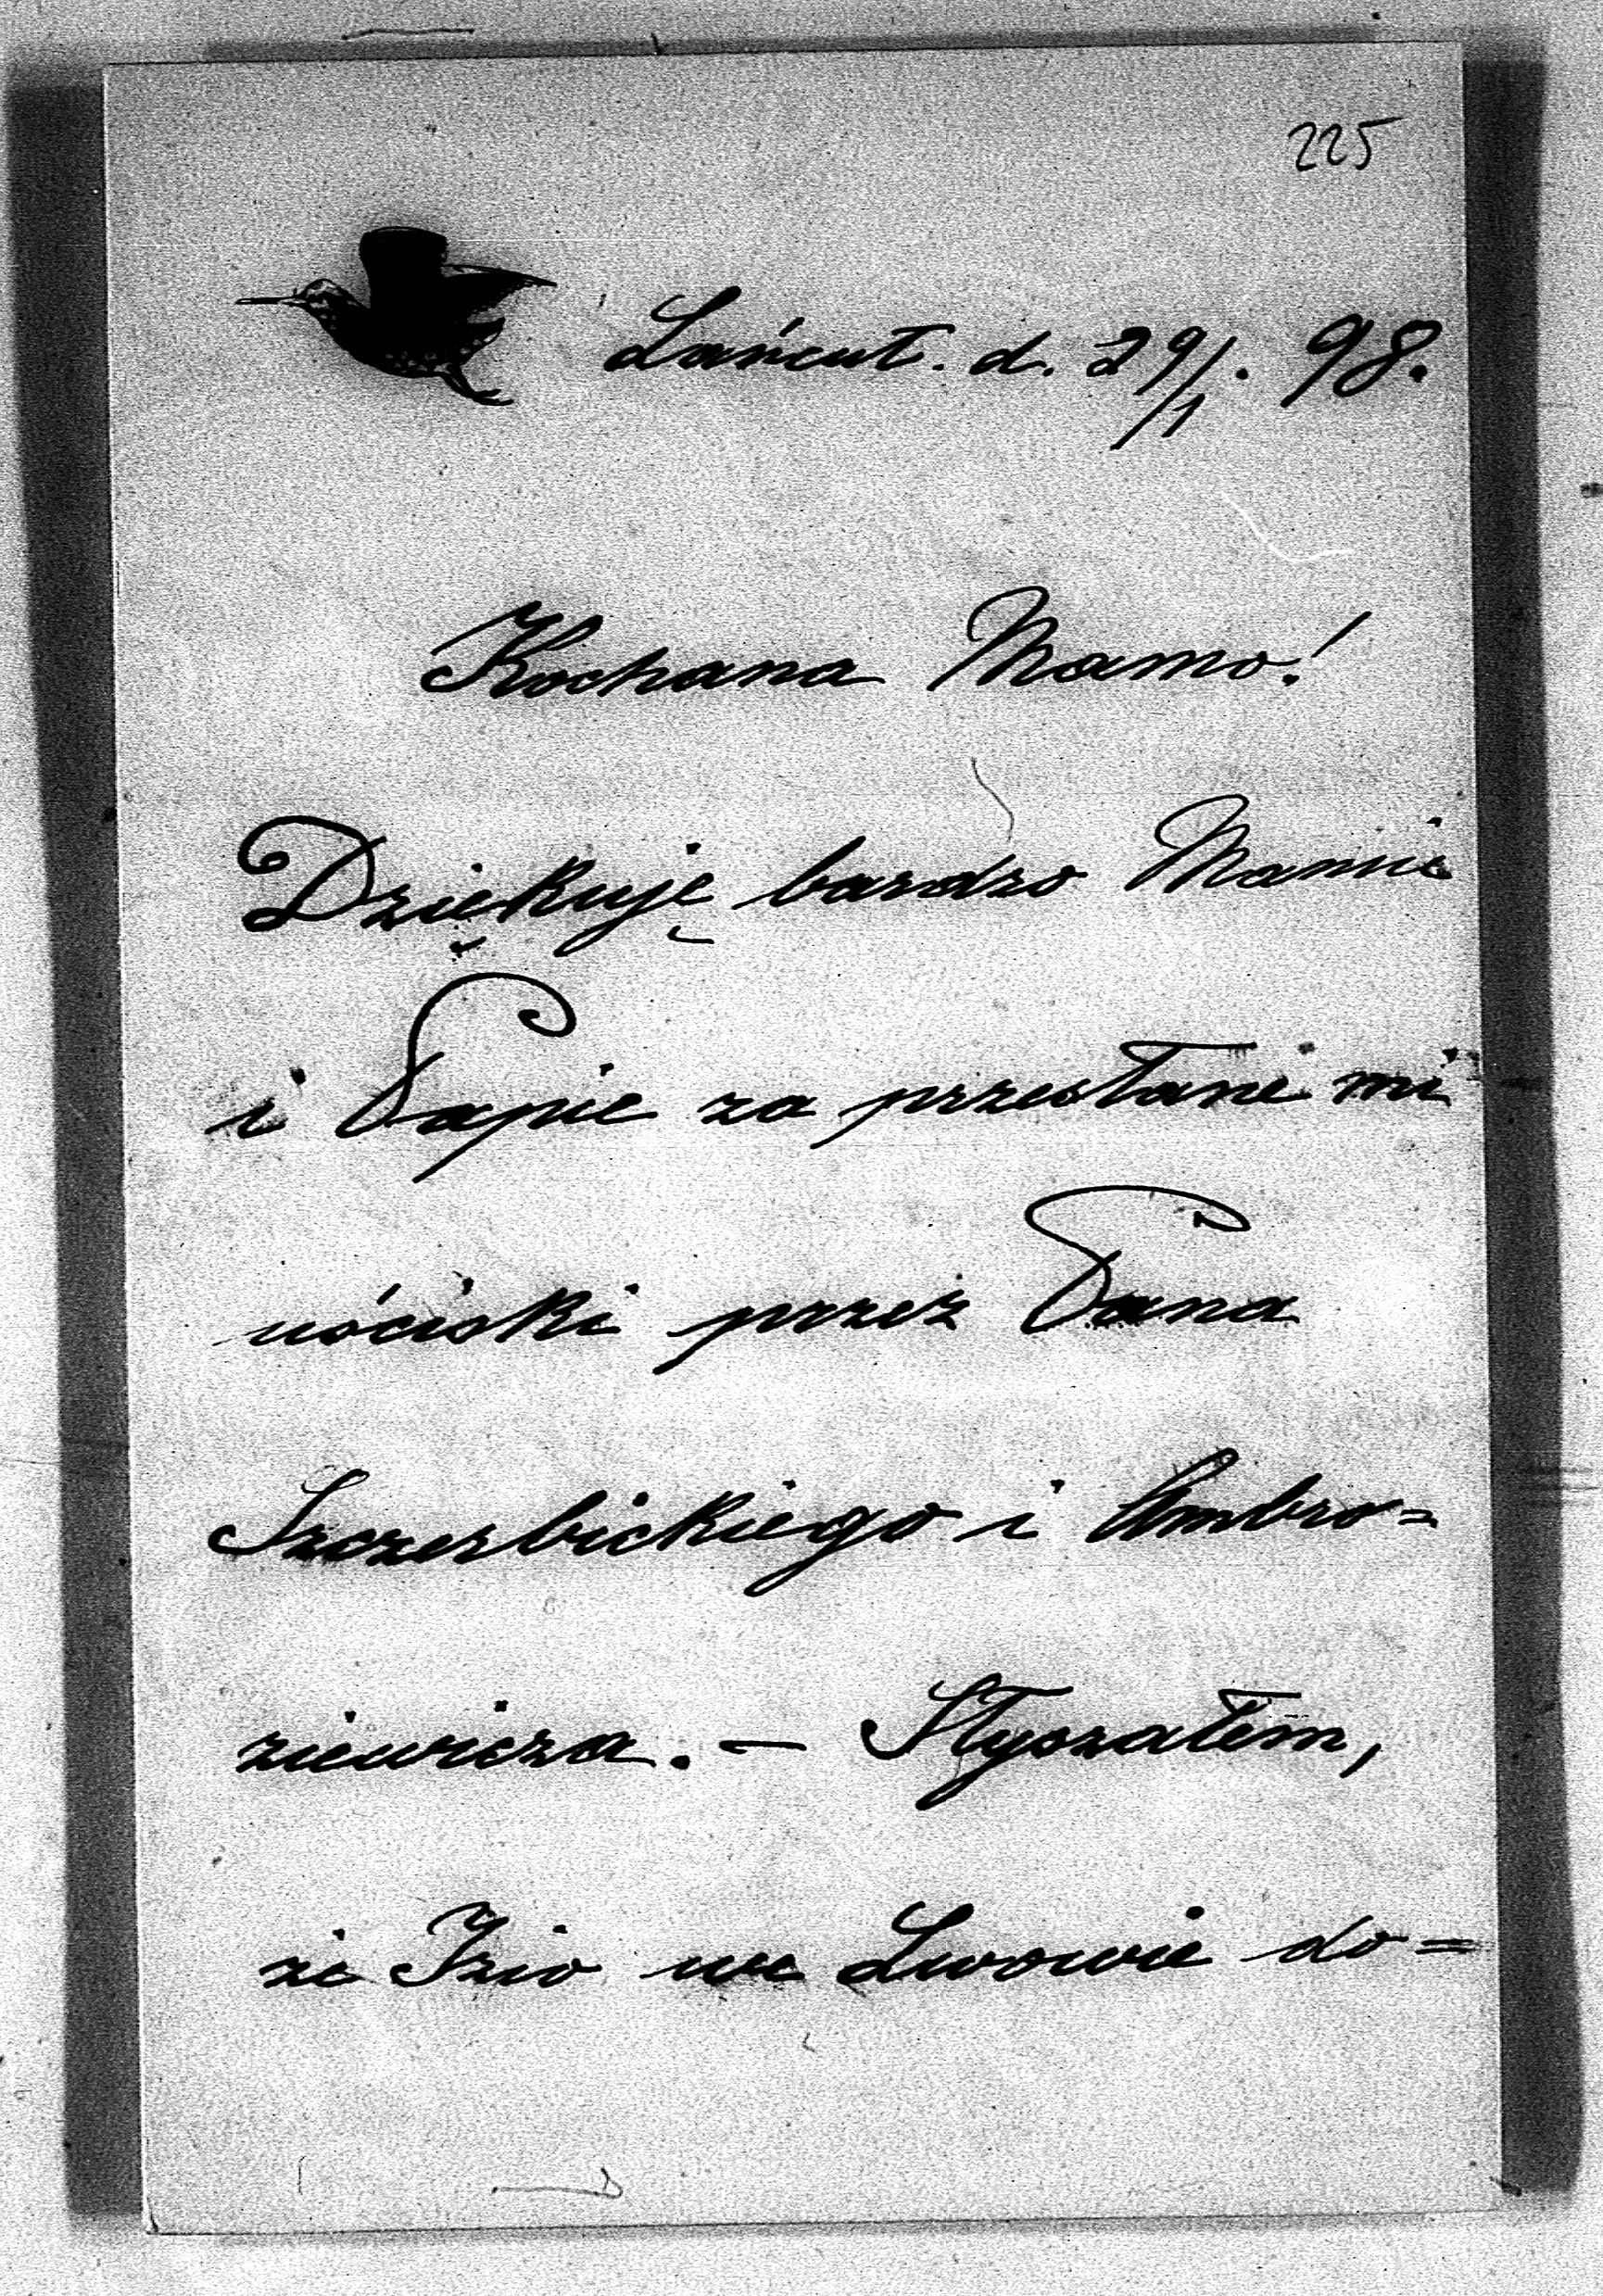 225
Łańcut. d. 29/1. 98.
Kochana Mamo!
Dziękuję bardzo Mamie
i Papie za przesłane mi
uściski przez Pana
Szczerbickiego i Ambro=
ziewicza. – Słyszałem,
że Izio we Lwowie do=